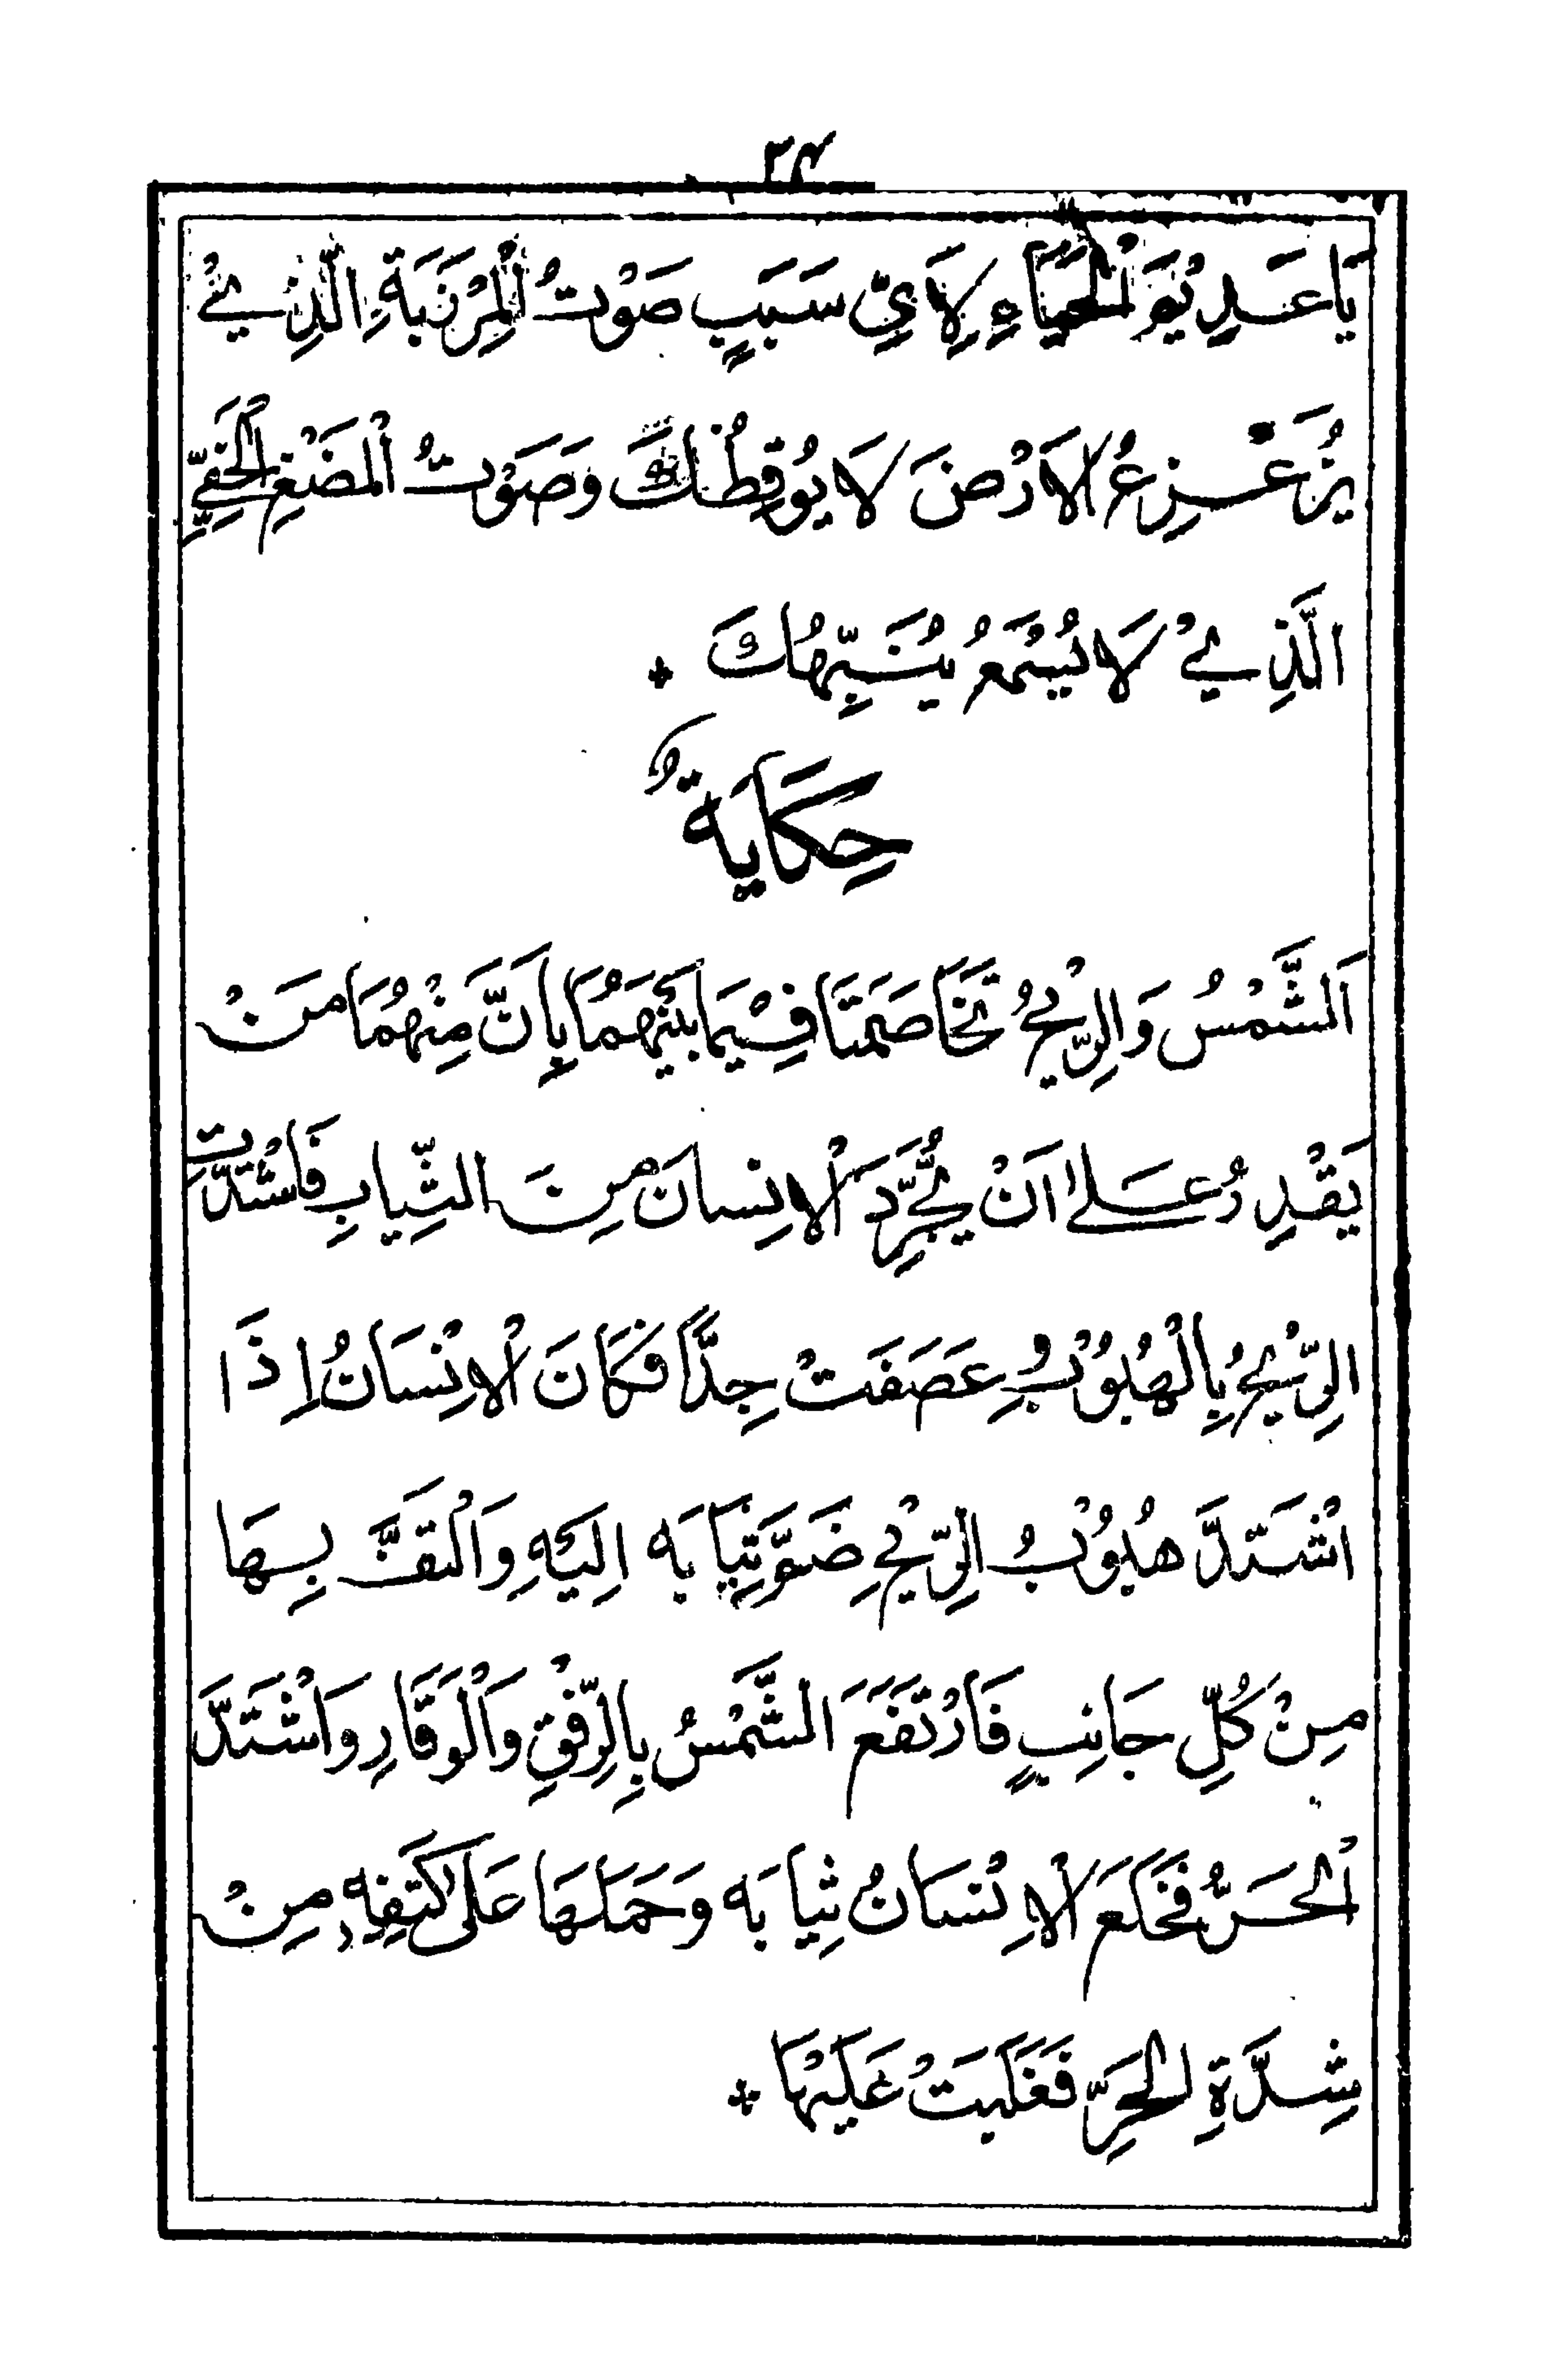 ٣٤
يَا عَدِيْوَ الْحَيَاءِ لِاَيِّ سَبَبٍ صَوْتُ الْمِرْنَبَةِ الَّذِيْ
يُزَعْزِعُ الْاَرْضَ لَا يُوْقِظُكَ وَصَوْتُ الْمَضْغِ الْخَفِيِّ
الَّذِيْ لَا يُسْمَعُ يُنَبِّهُكَ ٭
حِكَايَةٌ
اَلشَّمْسُ وَالرِّيْحُ تَخَاصَمَتَا فِيْمَا بَيْنَهُمَا بِاَنَّ مِنْهُمَا مَنْ
يَقْدِرُ عَلٰى اَنْ يُجَرِّدَ الْاِنسانَ مِنَ الثِّيابِ فَاشْتَدَّتِ
الرِّيْحُ بِالْهُبُوْبِ وَعَصَفَتْ جِدًّا فَكَانَ الْاِنْسَانُ اِذَا
اشْتَدَّ هُبُوْبُ الرِّيْحِ ضَوَّ ثِيَابَه اِلَيْهِ وَالْتَفَّ بِهَا
مِنْ كُلِّ جَانِبٍ فَارْتَفَعَ الشَّمْسُ بِالرِّفْقِ وَالْوَقَارِ وَاشْتَدَّ
الْحَرُّ فَخَلَعَ الْاِنْسَانُ ثِيابَه وَحَمَلَهَا عَلٰى كَتِفِهٖ مِنْ
شِدَّةِ الْحَرِّ فَغَلَبَتْ عَلَيْهَا ٭